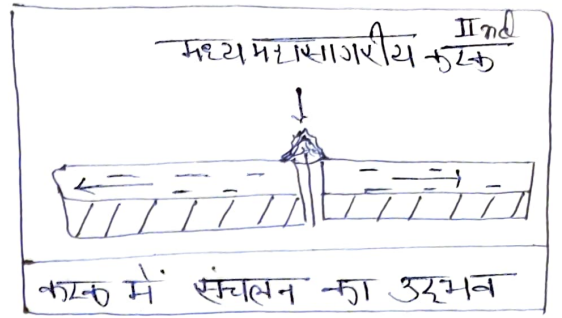 IInd
मध्य महासागरीय कटक
कटक में संचलन का उद्भव